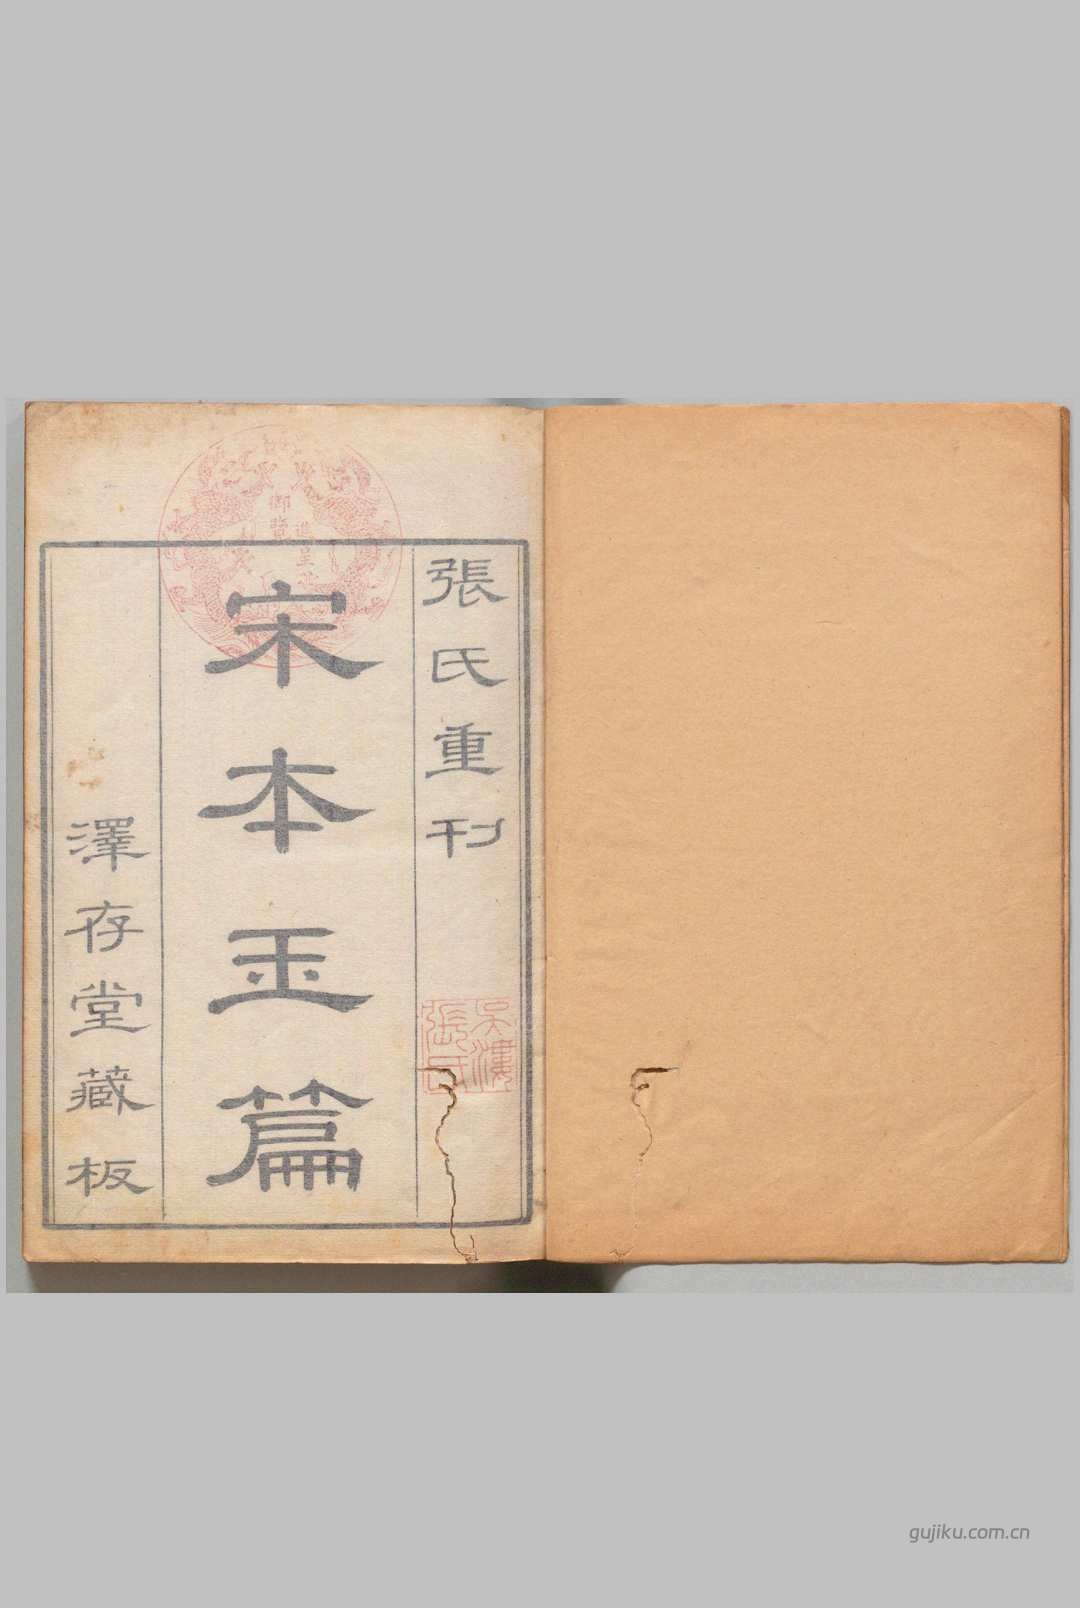 張氏重刊
宋本玉篇
澤存堂藏板
御覽
進呈
張氏
gujiku.com.cn